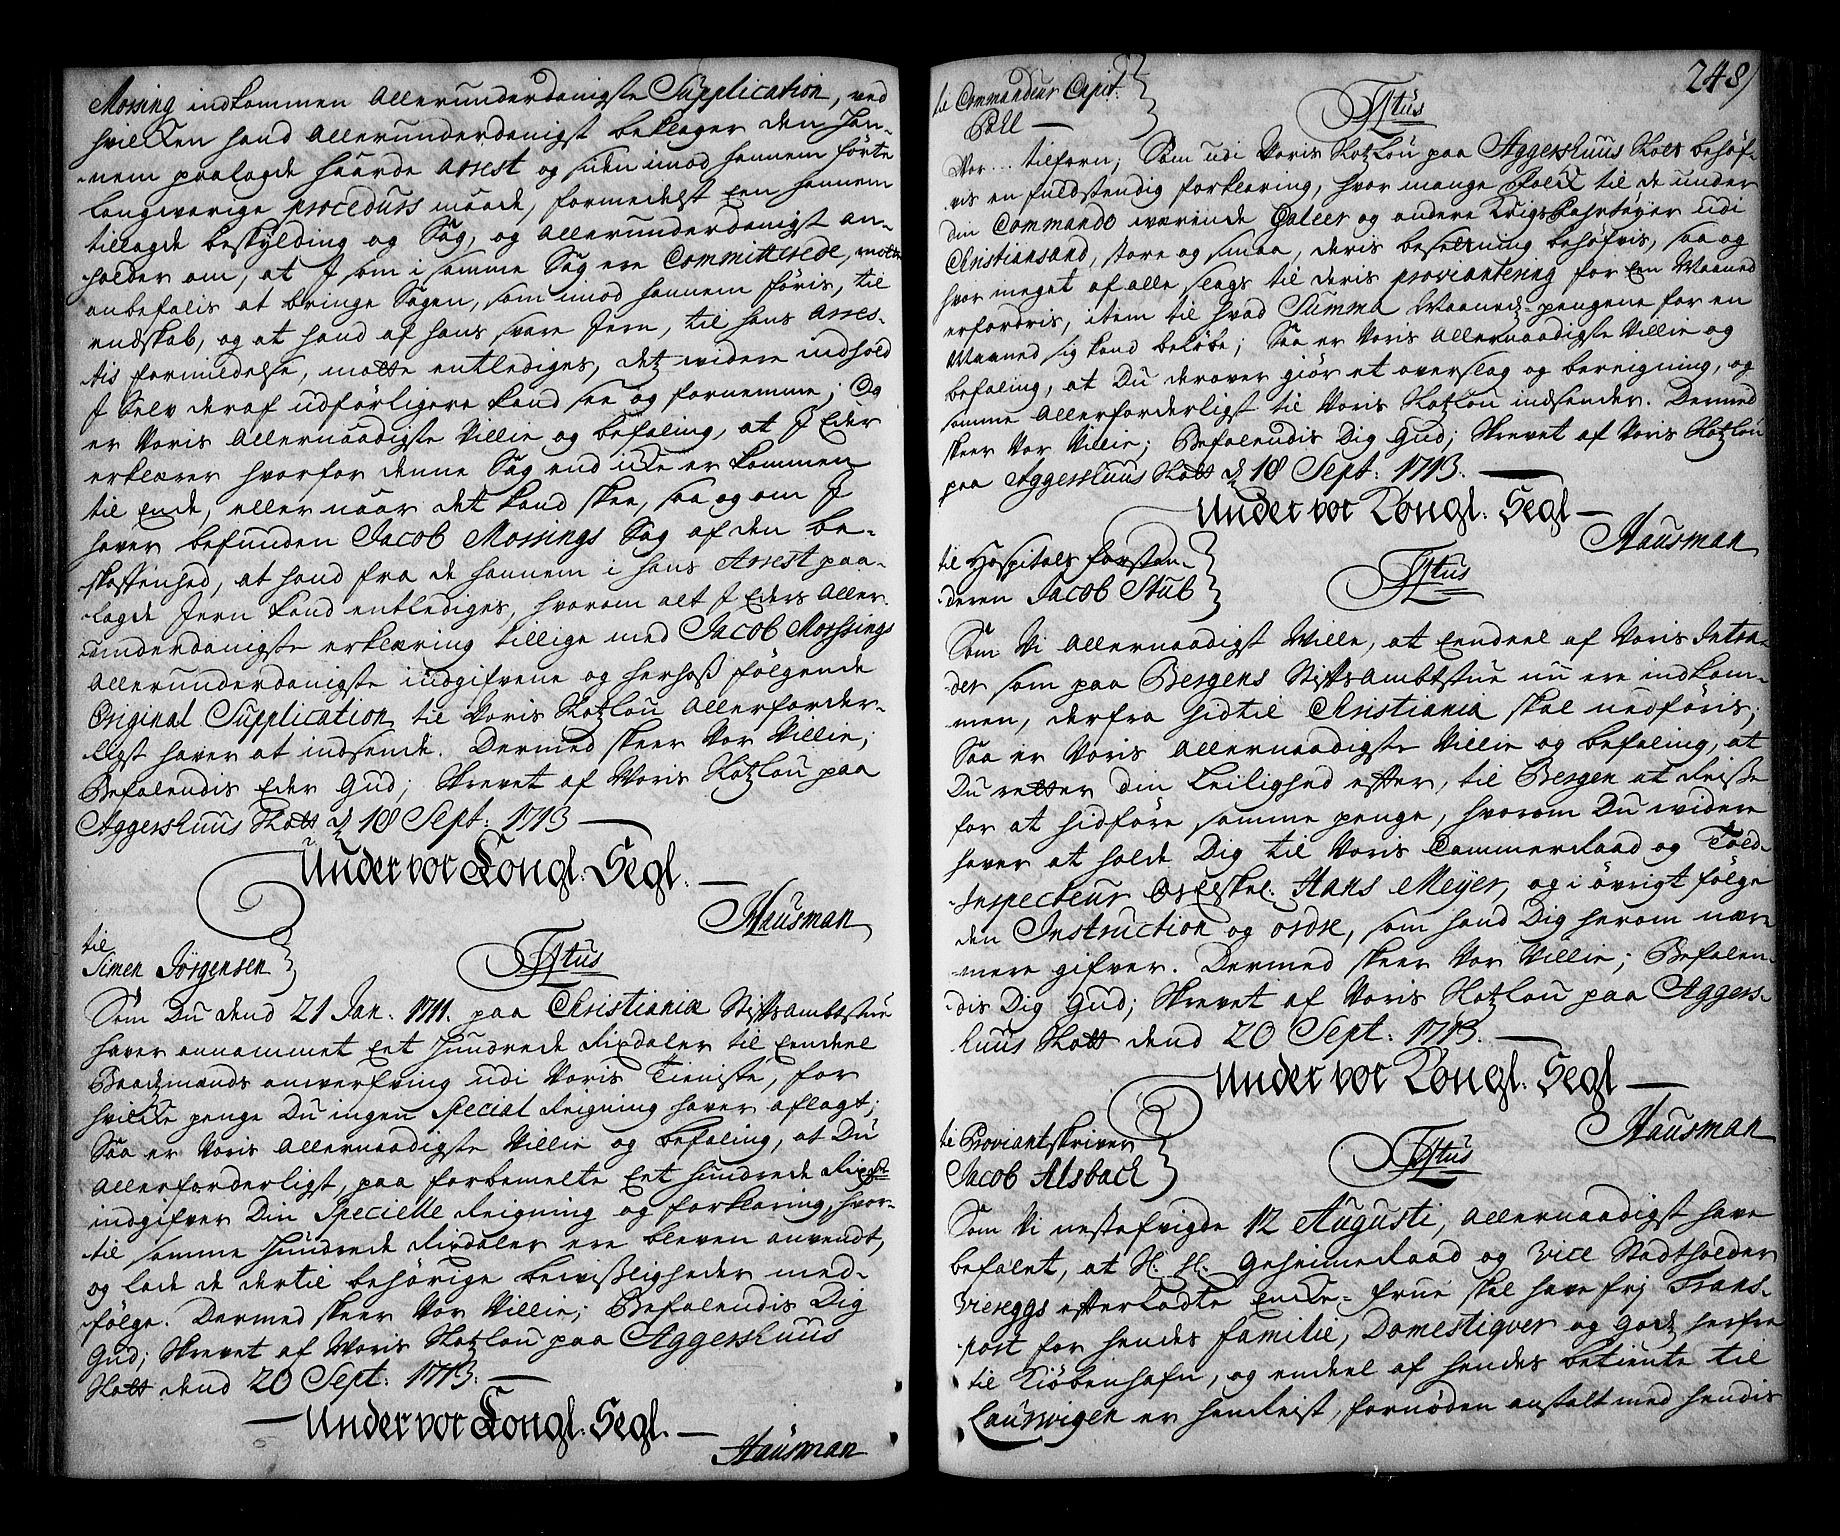 Mossing indkommen allerunderdanigste Supplication, ved
hvilcken hand allerunderdanigst beklager den han-
nem paalagde haarde Arrest og siden imod hannem förte
langvarige procedurs maade, formedelst een hannem
tillagde beskylding og Sag, og allerunderdanigst an-
holder om, at I som i samme Sag ere Committerede, motte
anbefalis at bringe Sagen, som imod hannem föris, til
endskab, og at hand af hans svare Jern, til hans Arres-
tis formildelse, motte entlediges, det widere indhold
I Selv deraf udförligere kand see og fornemme; Og
er Voris allernaadigste Villie og befaling, at I Eder
erklærer hvorfor denne Sag end icke er kommen
til Ende, eller naar det kand skee, saa og om I
haver befunden Jacob Mossings Sag af den be-
skaffenhed, at hand fra de hannem i hans Arrest paa-
lagde Jern kand entlediges, hvorom alt I Eders aller-
underdanigste erklæring tillige med Jacob Morssings
allerunderdanigste indgifvene og herhoß fölgende
Original Supplication, til Voris Slotzlou allerforder-
ligst haver at indsende. Dermed skeer Vor Villie;
Befalendis Eder Gud; Skrevet af Voris Slotzlou paa
Aggershuus Slott d 18 Sept: 1713.
Under vor Kongl. Segl.
Hausman
til
Simen Jörgensen
Titus
Som Du dend 21 Jan. 1711. paa Christianiæ Stiftsambtstue
haver annammet Eet Hundrede Rixdaler til Eendeel
Baadzmænds anverfving udi Voris Tieniste, for
hvilcke penge Du ingen Special Reigning haver aflagt;
Saa er Voris Allernaadigste Villie og befaling, at Du
allerforderligst, paa forbemelte Eet hundrede Rixdr
indgifver Din Specielle Reigning og forklaring, hvor-
til samme Hundrede Rixdaler ere bleven anvendt,
og lade de dertil behörige bevißligheder med-
fölge. Dermed skeer Vor Villie; Befalendis Dig
Gud; Skrevet af Voris Slotzlou paa Aggershuus
Slott dend 20 Sept: 1713.
Under vor Kongl. Segl.
Hausman
248
til Commandeur Capit:
Pall
Titus
Vor... tilforn; Som udi Voris Slotzlou paa Aggershuus Slott behöf-
vis en fuldstendig forklaring, hvor mange folck til de under
din Commando wærende Galeer og andere Krigs fahrtöyer udi
Christiansand, store og smaa, deris besetning behöfvis, saa og
hvor meget af alle slags til deris proviantering for een Maaned
erfordris, item til hvad Summa Maanedz-pengene for en
Maaned sig kand belöbe; Saa er Voris Allernaadigste Villie og
befaling, at Du derover giör et overslag og bereigning, og
samme Allerforderligst til Voris Slotzlou indsender. Dermed
skeer Vor Villie; Befalendis Dig Gud; Skrevet af Voris Slotzlou
paa Aggershuus Slott d 18 Sept: 1713.
Under vor Kongl. Segl
Hausman
til Hospitals forstan-
deren Jacob Stub
Titus
Som Vi Allernaadigst Wille, at Eendeel af Voris Intra-
der som paa Bergens Stiftsambtstue nu ere indkom-
men, derfra hidtil Christiania skal nedföris;
Saa er Voris Allernaadigste Villie og befaling, at
Du retter din Leilighed efter, til Bergen at Reiße
for at hidföre samme penge, hvorom Du widere
haver at holde Dig til Voris Cammerraad og Told-
Inspecteur Os Elskel. Hans Meyer, og i övrigt fölge
den Instruction og ordre, som hand Dig herom nær-
mere gifver. Dermed skeer Vor Villie; Befalen-
dis Dig Gud; Skrevet af Voris Slotzlou paa Aggers-
huus Slott dend 20 Sept: 1713.
Under vor Kongl. Segl
Hausman
til Proviantskriver
Jacob Alsbach
Titus
Som Vi nestafvigde 12 Augusti, Allernaadigst have
befalet, at Sl. Hl. Geheimeraad og Vice Stadtholder
Vieregs efterladte Encke-frue skal have frj Trans-
port for hendes familie, Domestiqver og Godz herfra
til Kiöbenhafn, og endeel af hendes betiente til
Laurwigen er henreist, fornöden anstalt med hendis